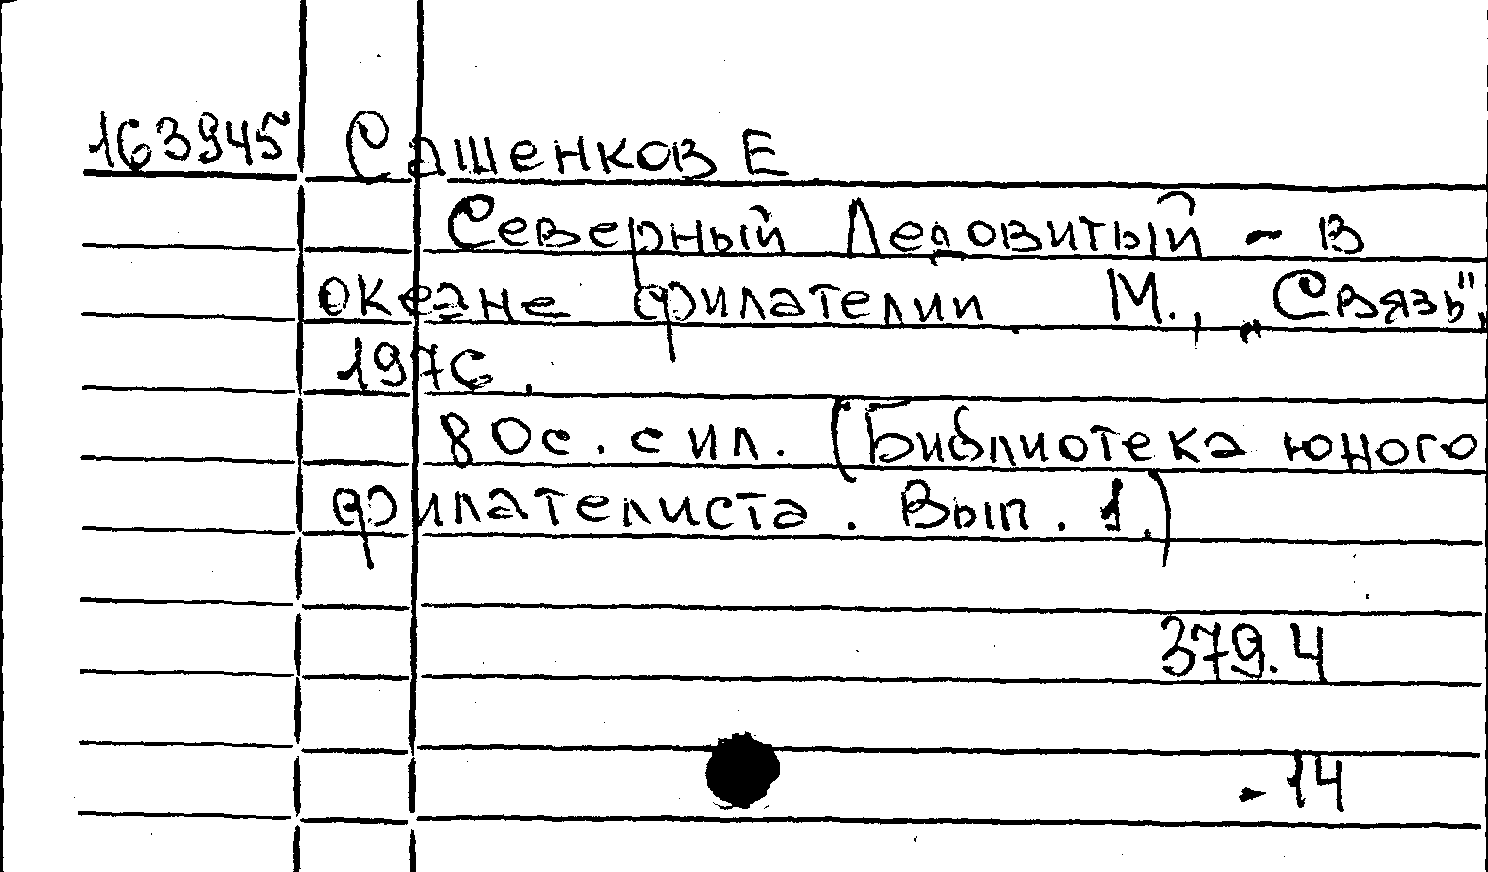 163945 Сашенков Е
Северный Ледовитый - в
океане филателии. М., „Связь",
1976.
80с. с ил. (Библиотека юного
филателиста. Вып. 1.)
379.4
- 14